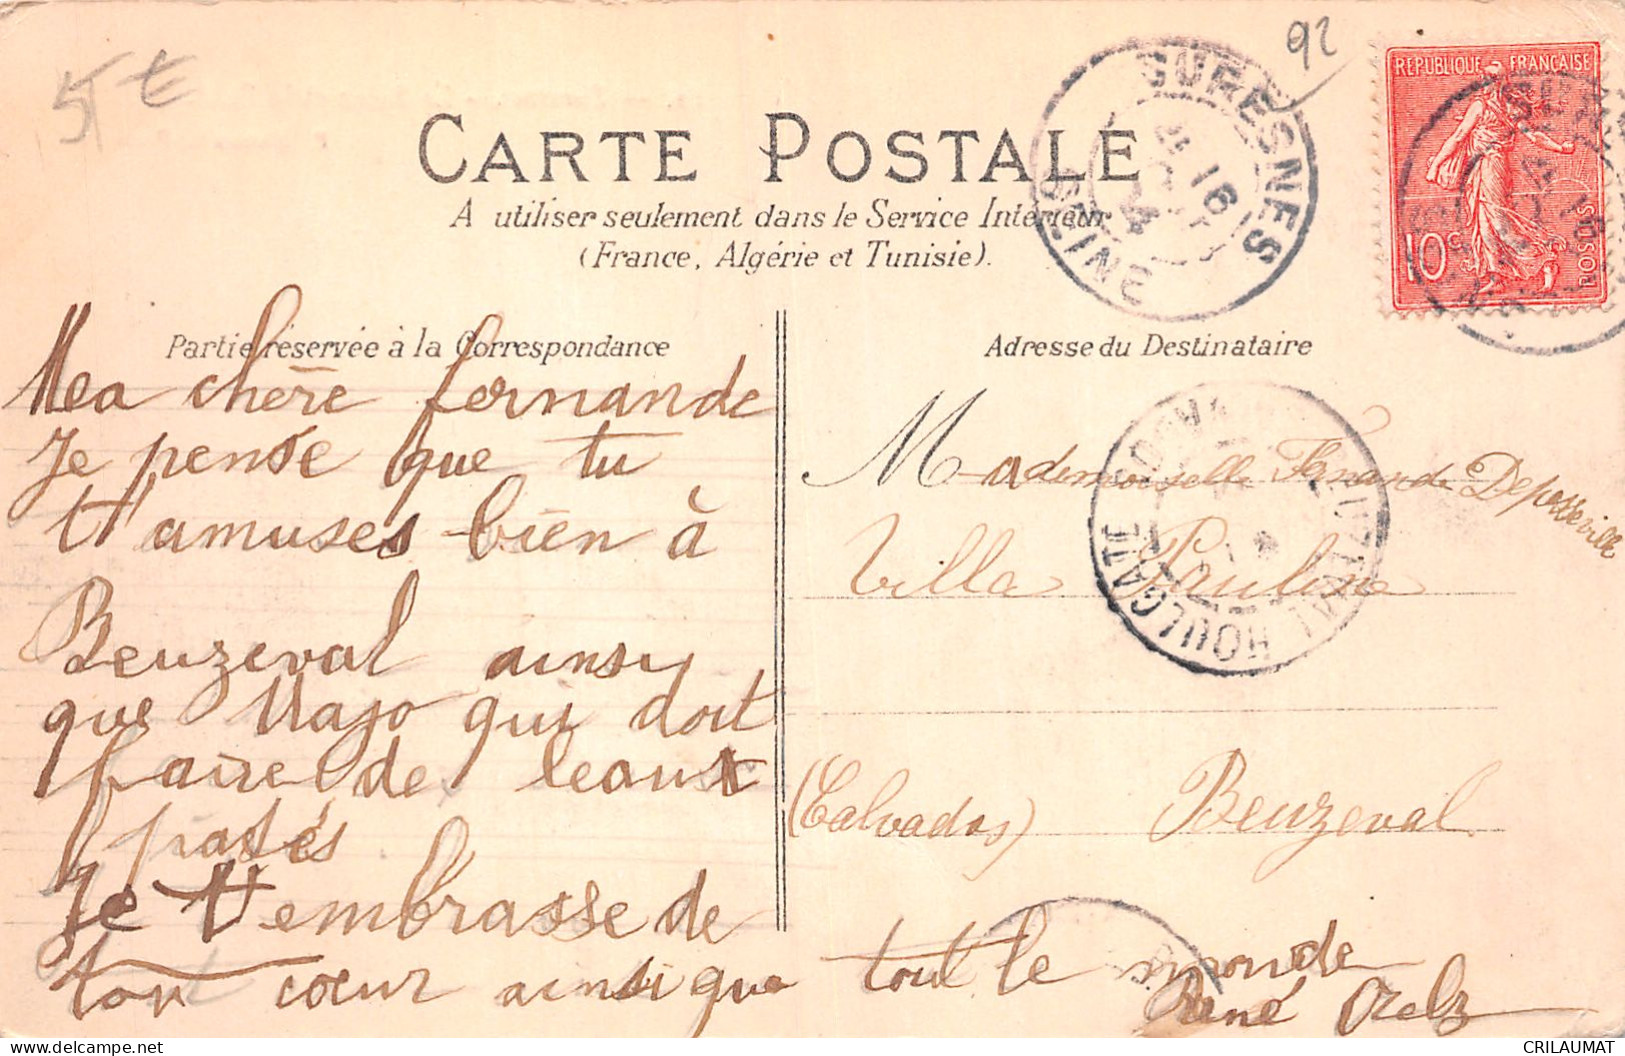 5 €
92
CARTE POSTALE
A utiliser seulement dans le Service Intérieur
(France, Algérie et Tunisie).
SURESNES
SEINE
16
REPUBLIQUE FRANÇAISE
10c
POSTES
Partie réservée à la Correspondance
Adresse du Destinataire
Ma chère fernande
Je pense que tu
t'amuses bien à
Beuzeval ainsi
que Majo qui doit
faire de beaux
patés
Je t'embrasse de
tout cœur ainsi que tout le monde
René
Mademoiselle Fernande Depesseville
Villa Pauline
HOULGATE BEUZEVAL
CALVADOS
(Calvados) Beuzeval
CRILAUMAT